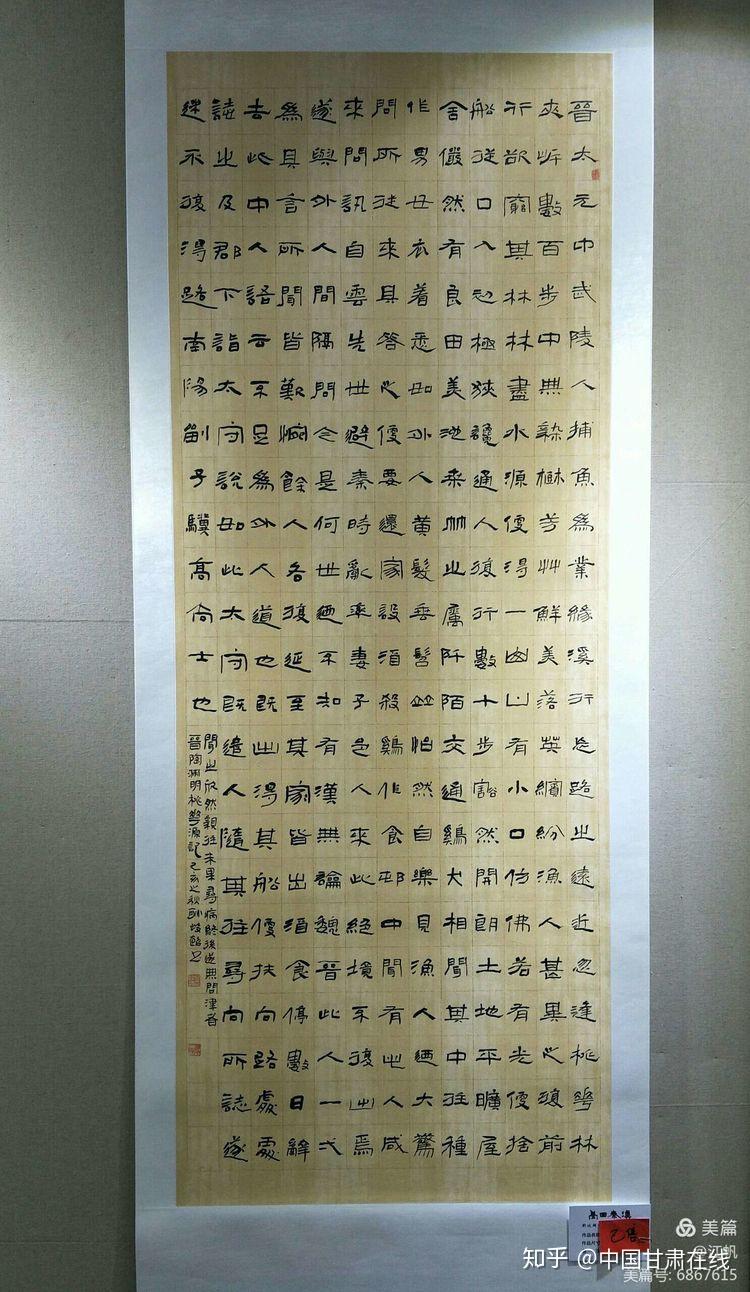 晉太元中武陵人捕魚爲業緣溪行忘路之遠近忽逢桃華林
夾岸數百步中無雜樹芳艸鮮美落英繽紛漁人甚異之復前
行欲窮其林林盡水源便得一山山有小口仿佛若有光便捨
船從口入初極狹纔通人復行數十步豁然開朗土地平曠屋
舍儼然有良田美池桑竹之屬阡陌交通鷄犬相聞其中往種
作男女衣着悉如外人黃髮垂髫並怡然自樂見漁人廼大驚
問所從來具答之便要還家設酒殺鷄作食邨中聞有此人咸
來問訊自雲先世避秦時亂率妻子邑人來此絕境不復出焉
遂與外人間隔問今是何世廼不知有漢無論魏晉此人一弌
爲具言所聞皆歎惋餘人各復延至其家皆出酒食停數日辭
去此中人語云不足爲外人道也既出得其船便扶向路處處
誌之及郡下詣太守說如此太守既遣人隨其往尋向所誌遂
迷不復得路南陽劉子驥高尚士也
聞之欣然親往未果尋病終後遂無問津者
晉陶淵明桃花源記己亥之秋
已售
美篇
@江帆
知乎 @中国甘肃在线
美篇号: 6867615